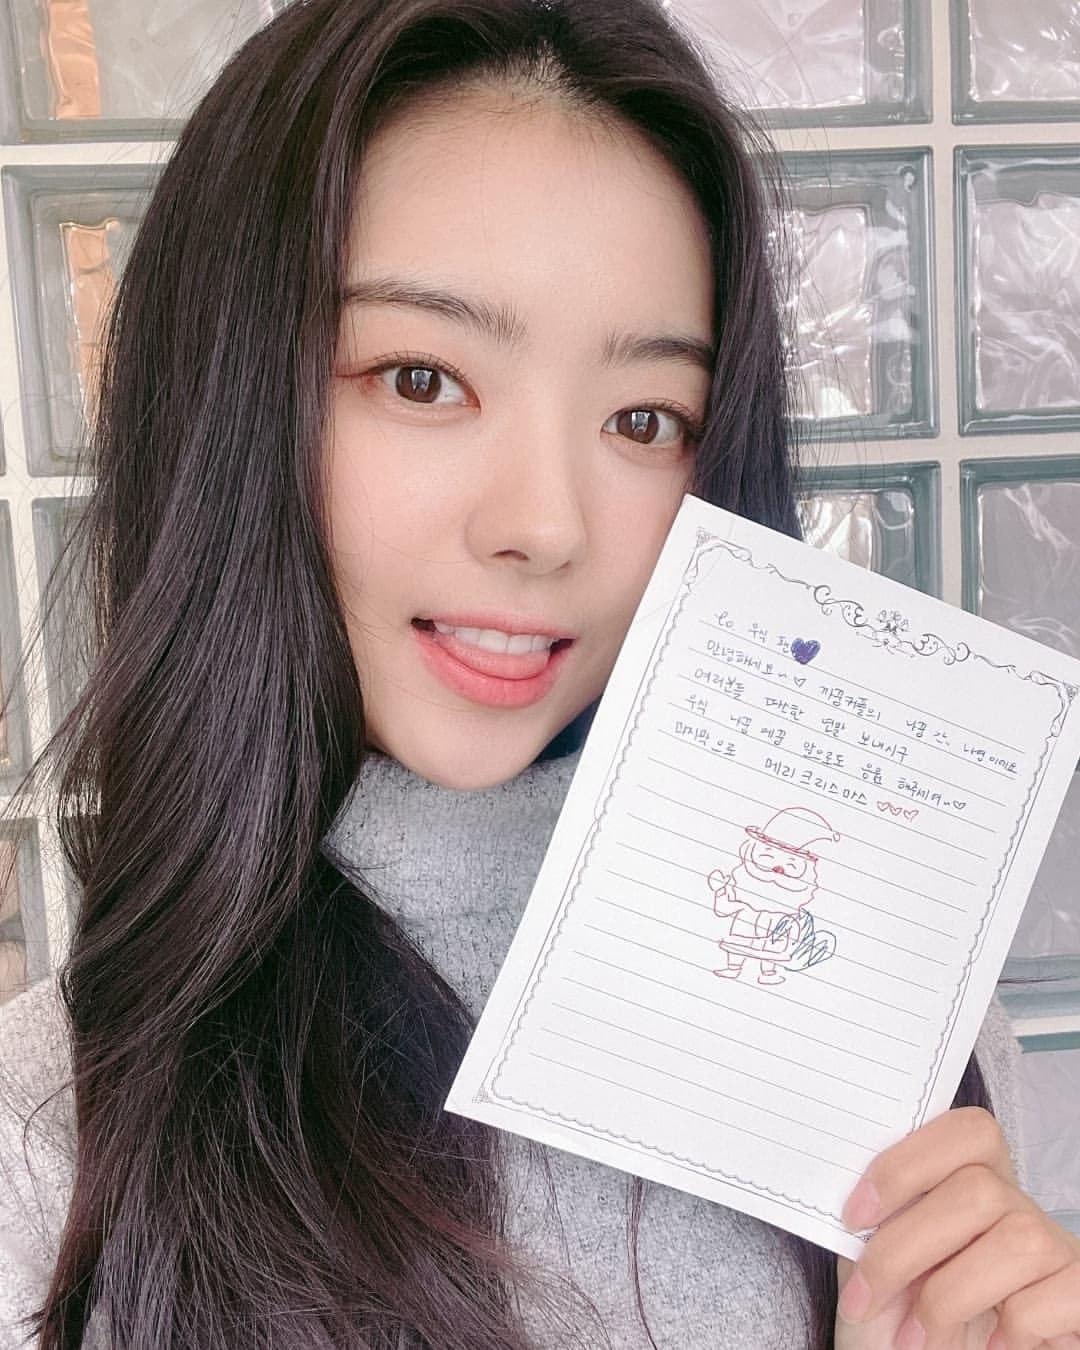 To 우식 팬
안녕하세요~♡ 까꿍커플의 나꿍 간. 나연이에요
여러분들 따스한 연말 보내시구
우식 나꿍 예꿍 앞으로도 응원 해주세여~♡
마지막으로 메리크리스마스 ♡♡♡